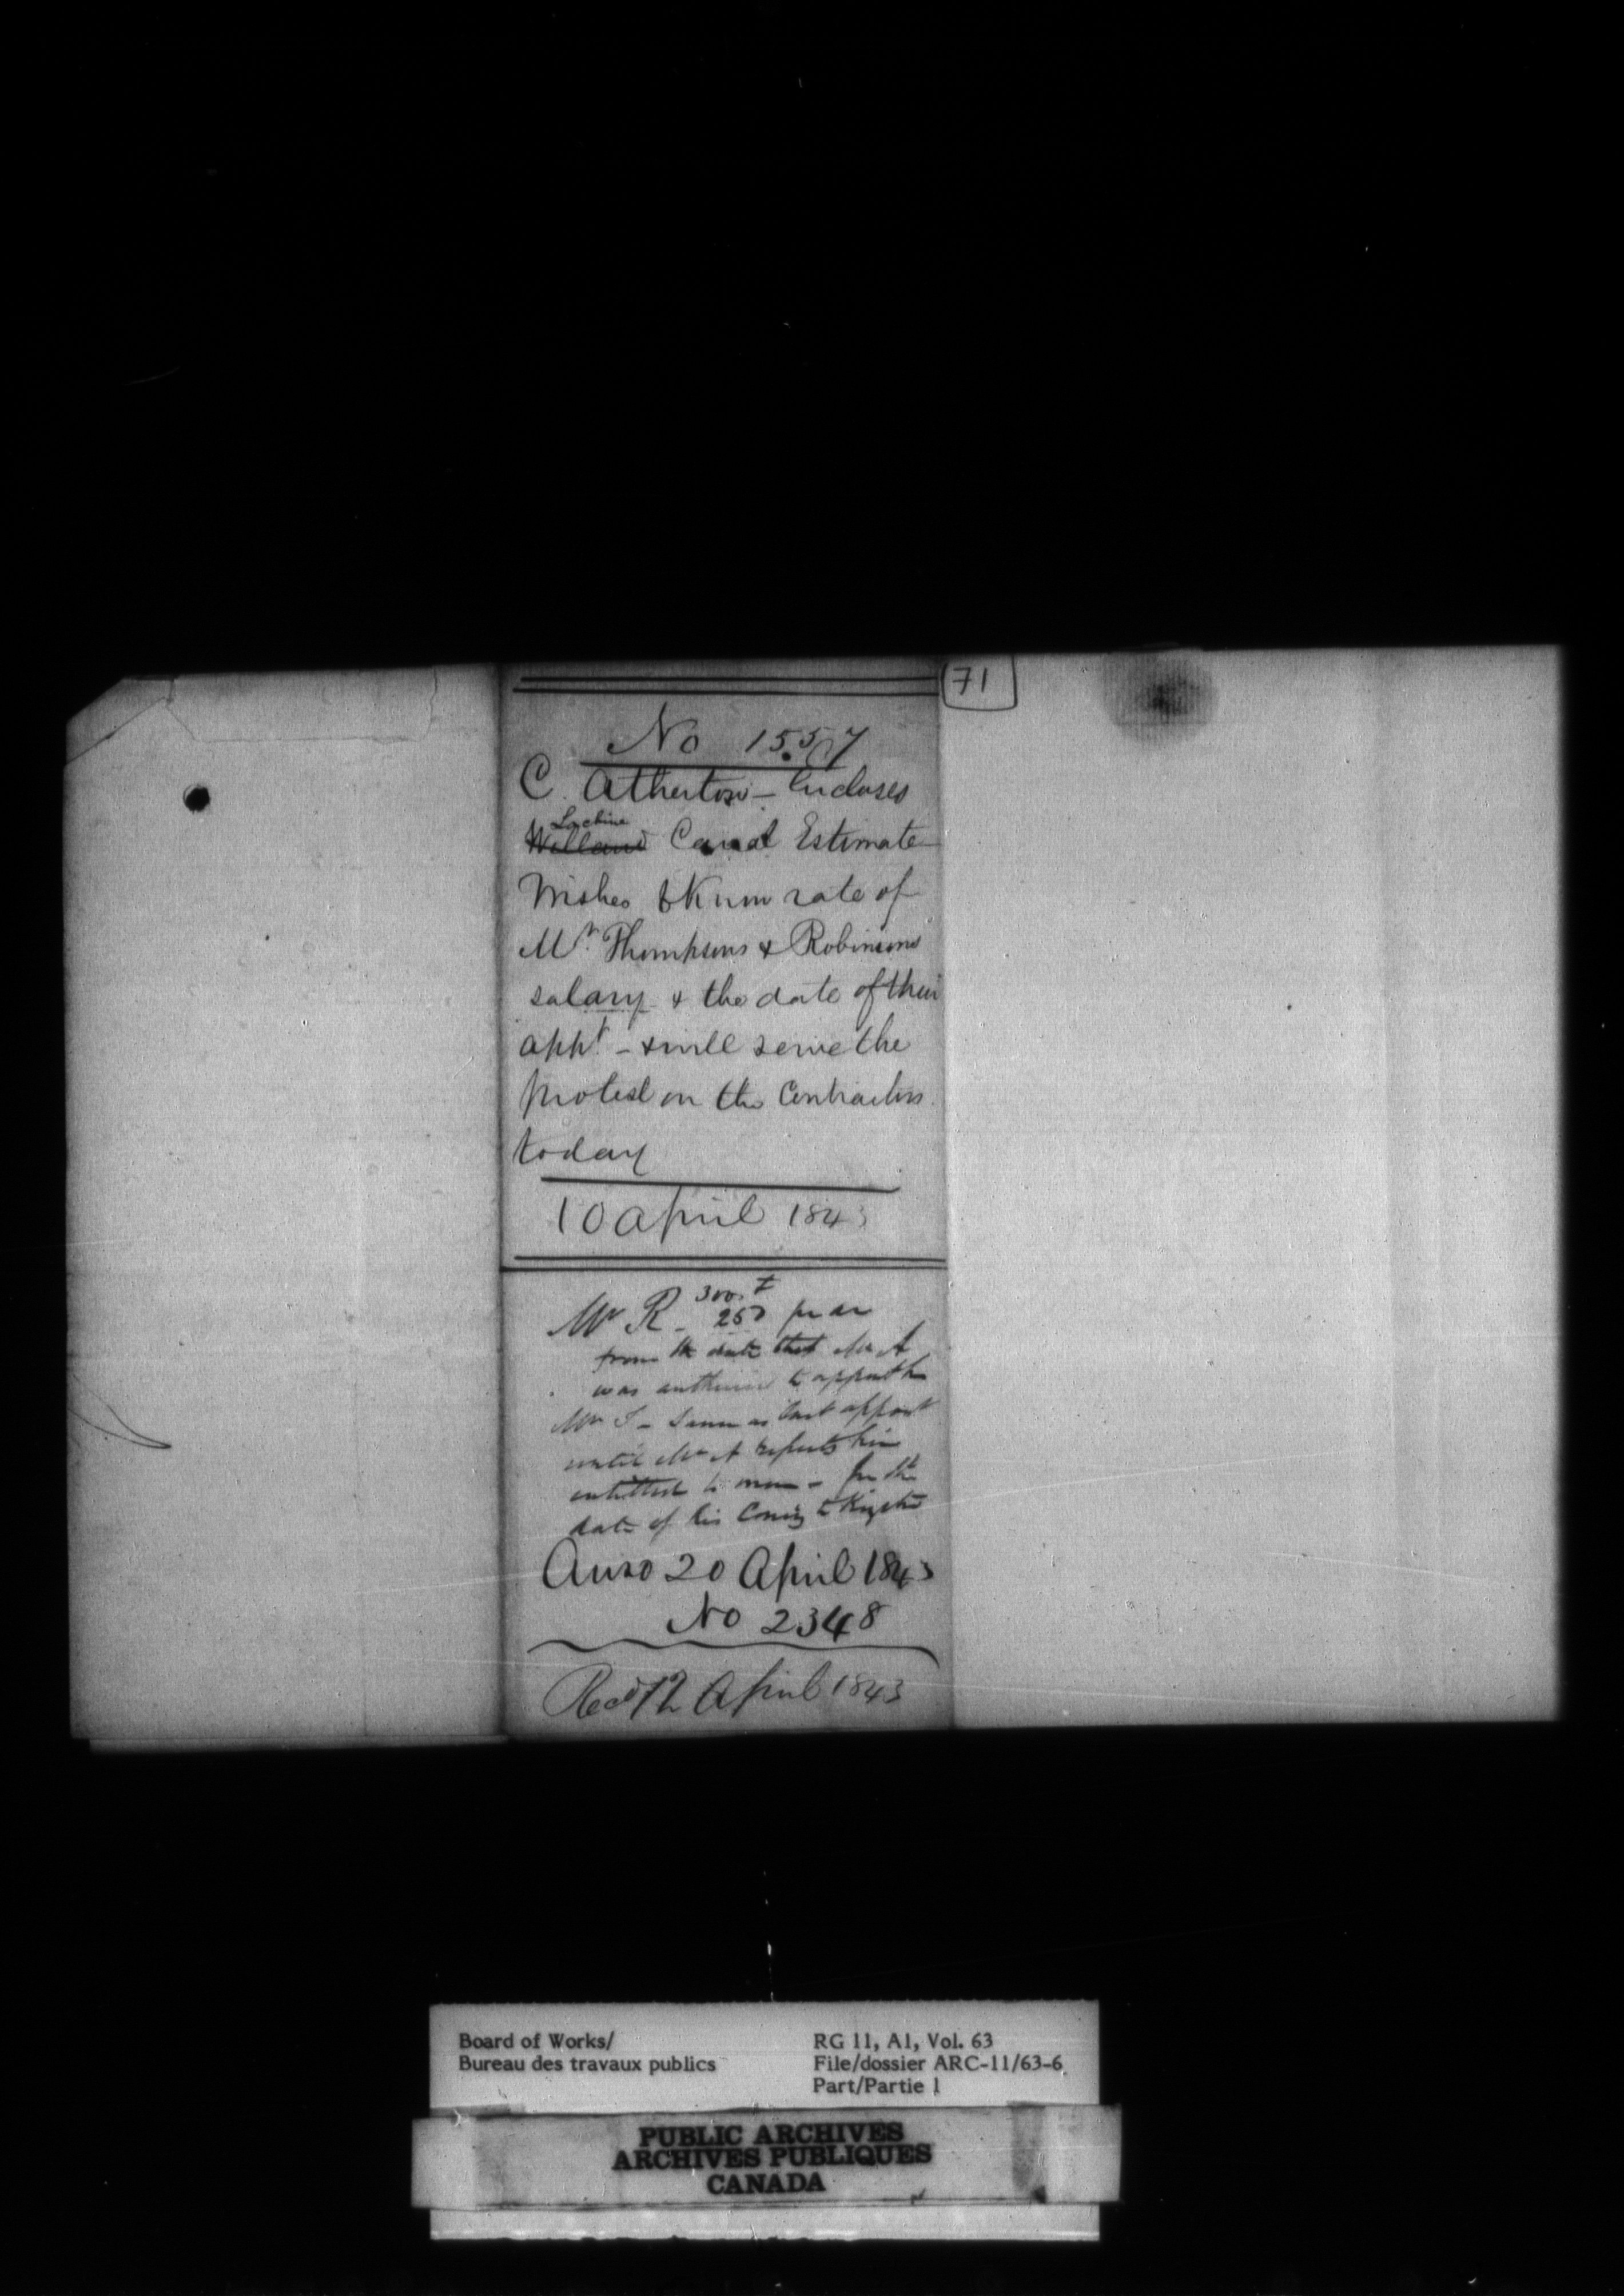 71
No 1557
C. Atherton – Encloses
Lachine
Welland Canal Estimate
Wishes to Know rate of
Mr. Thompsons & Robinsons
salary & the date of their
appt. – & will serve the
protest on the Contractors
today
10 April 1843
300.
Mr R – 250 pr an
from the date that Mr A
was authorised to appoint him
Mr T – Same as last
until Mr A reports him
entitled to more – from the
date of his Coming to Kingston
Ansd 20 April 1843
No 2348
Recd 12 April 1843
Board of Works/
Bureau des travaux publics
RG 11, A1, Vol. 63
File/dossier ARC-11/63-6
Part/Partie 1
PUBLIC ARCHIVES
ARCHIVES PUBLIQUES
CANADA